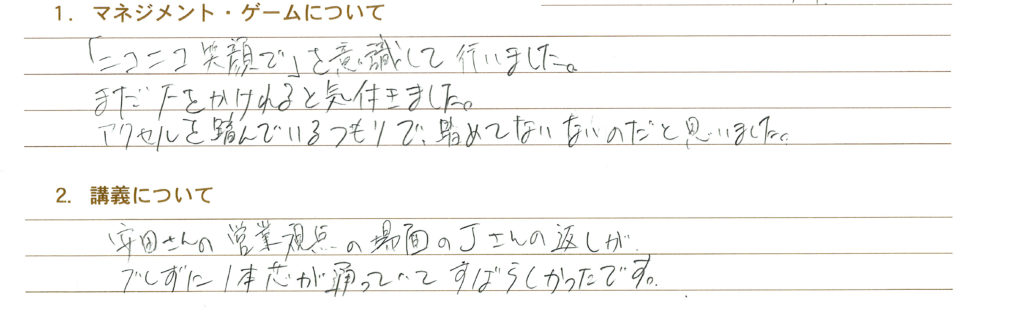 1. マネジメント・ゲームについて
「ニコニコ笑顔で」を意識して行いました。
まだ をかけれると気付きました。
アクセルを踏んでいるつもりで、踏めてないないのだと思いました。
2. 講義について
さんの営業視点の場面のJさんの返しが
ブレずに1本芯が通っていてすばらしかったです。